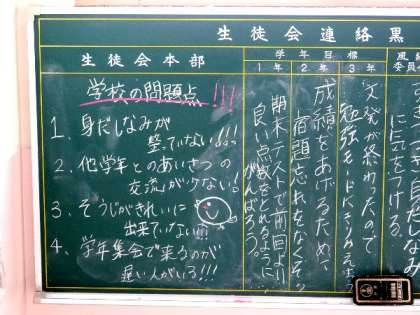 生徒会連絡黒
生徒会本部
学年目標
1年
2年
3年
委員
学校の問題点!!!
1、身だしなみが
整っていない!!!
2、他学年とのあいさつの
交流がバケない!
3、そうじがきれいに
出来ていない!!!
4、学年集会で来るのが
遅い人がいる!!!
文発が終わったので、
勉強モードにきりかえよう
成績をあげるため、
宿題忘れをなくそう
期末テストで前回より
良い点数をとれるように
がんばろう。